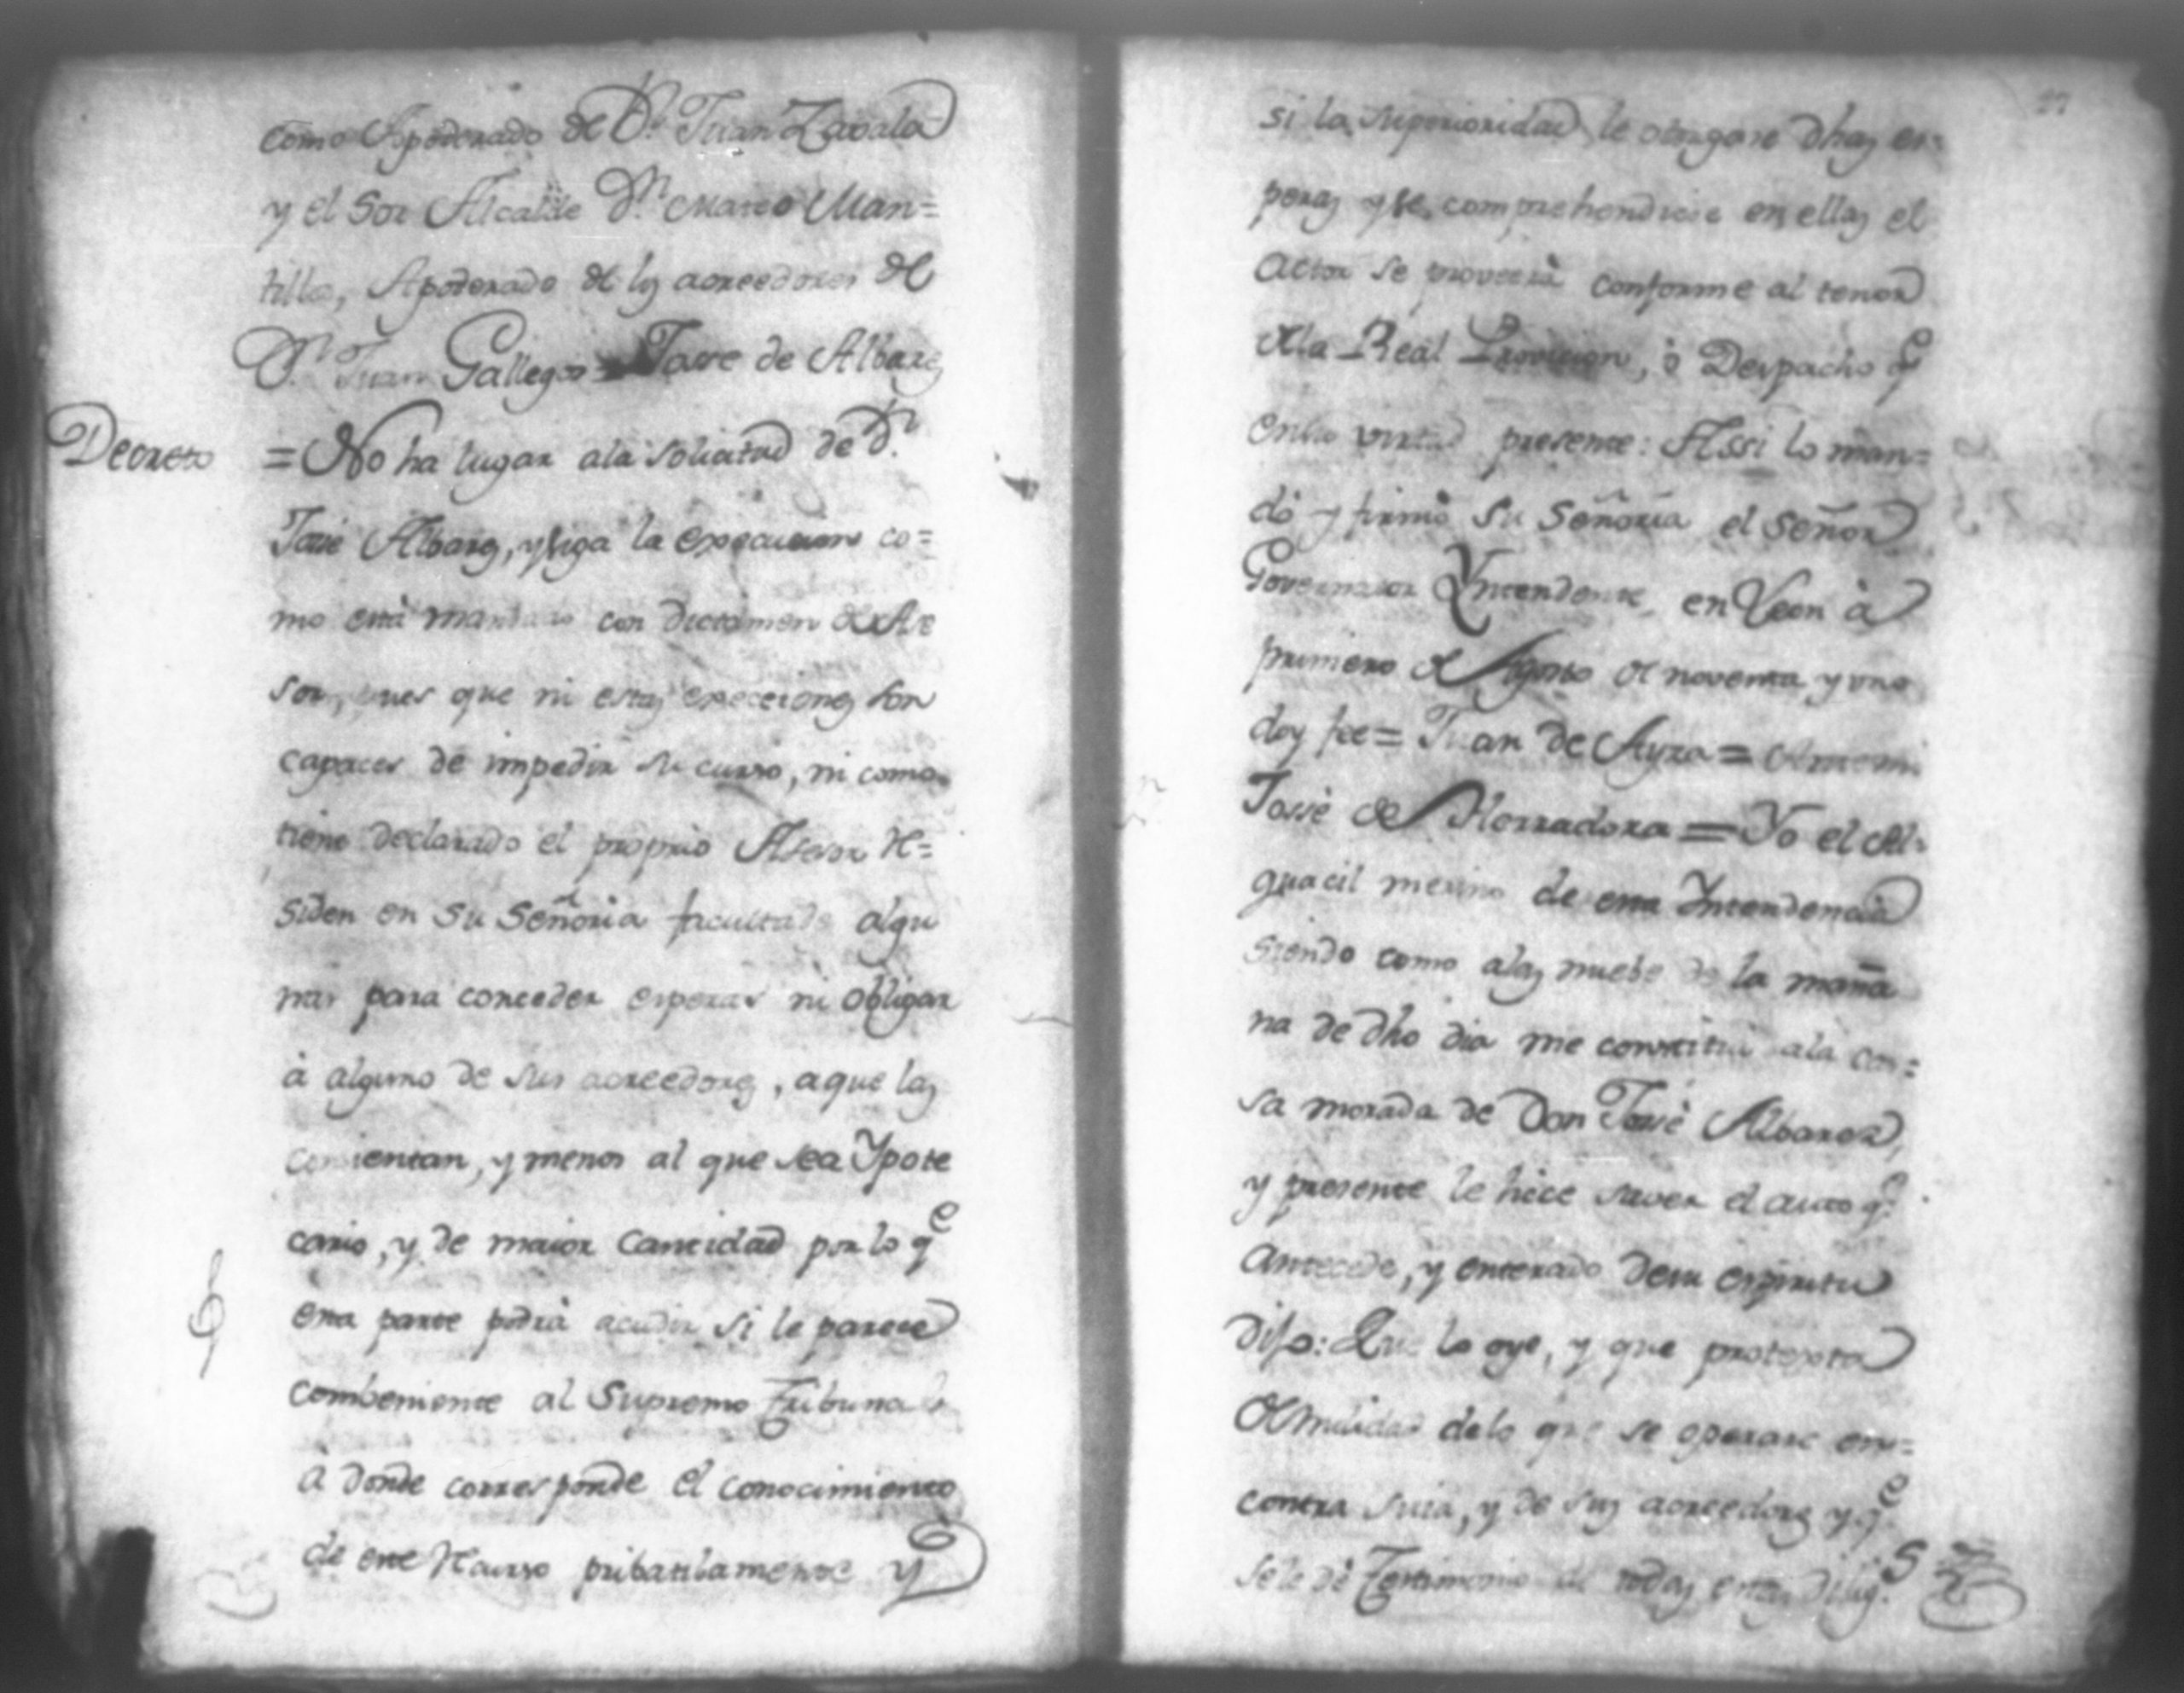 como Apoderado de Dn. Juan Zavala
y el Sor Alcalde Dn. Mateo Man=
tilla, Apoderado de ls acreedores de
Dn. Juan Gallegos = Jose de Albarez
Decreto = No ha lugar ala solicitud de Dn.
José Albarez, y siga la execucion co=
mo está mandado con dictamen de Ase
sor, pues que ni estas excecciones son
capaces de impedir su curso, ni como
tiene declarado el proprio Asesor re=
siden en su Señoria facultads algu
nas para conceder esperas ni obligar
à alguno de sus acreedores, aque las
consientan, y menos al que sea Ypote
cario, y de maior cantidad por lo qe
esta parte podrà acudir si le parece
combeniente al Supremo Tribunal
à donde corresponde el conocimiento
de este recurso pribatibamente y
27
si la superioridad le otorgare dhas es=
peras y se comprehendiere en ellas el
Actor se proveerà conforme al tenor
dela Real Provicion, ò Despacho qe
en su virtud presente: Assi lo man=
dò y firmò su Señoria el Señor
Governador Yntendente en Leon à
primero de Agosto de noventa y uno
doy fee = Juan de Ayza = Antemi
Jossè de Norradora = Yo el Al=
guacil merino de esta Yntendencia
siendo como alas nuebe de la maña
na de dho dia me constitui ala ca=
sa morada de Don José Albarez,
y presente le hice saver el auto qe.
Antecede, y enterado desu espiritu
Dijo: Que lo oye, y que protexta
de nulidad delo que se operare en=
contra suia, y de sus acreedores y qe
sele dé Testimonio de todas estas diligs.